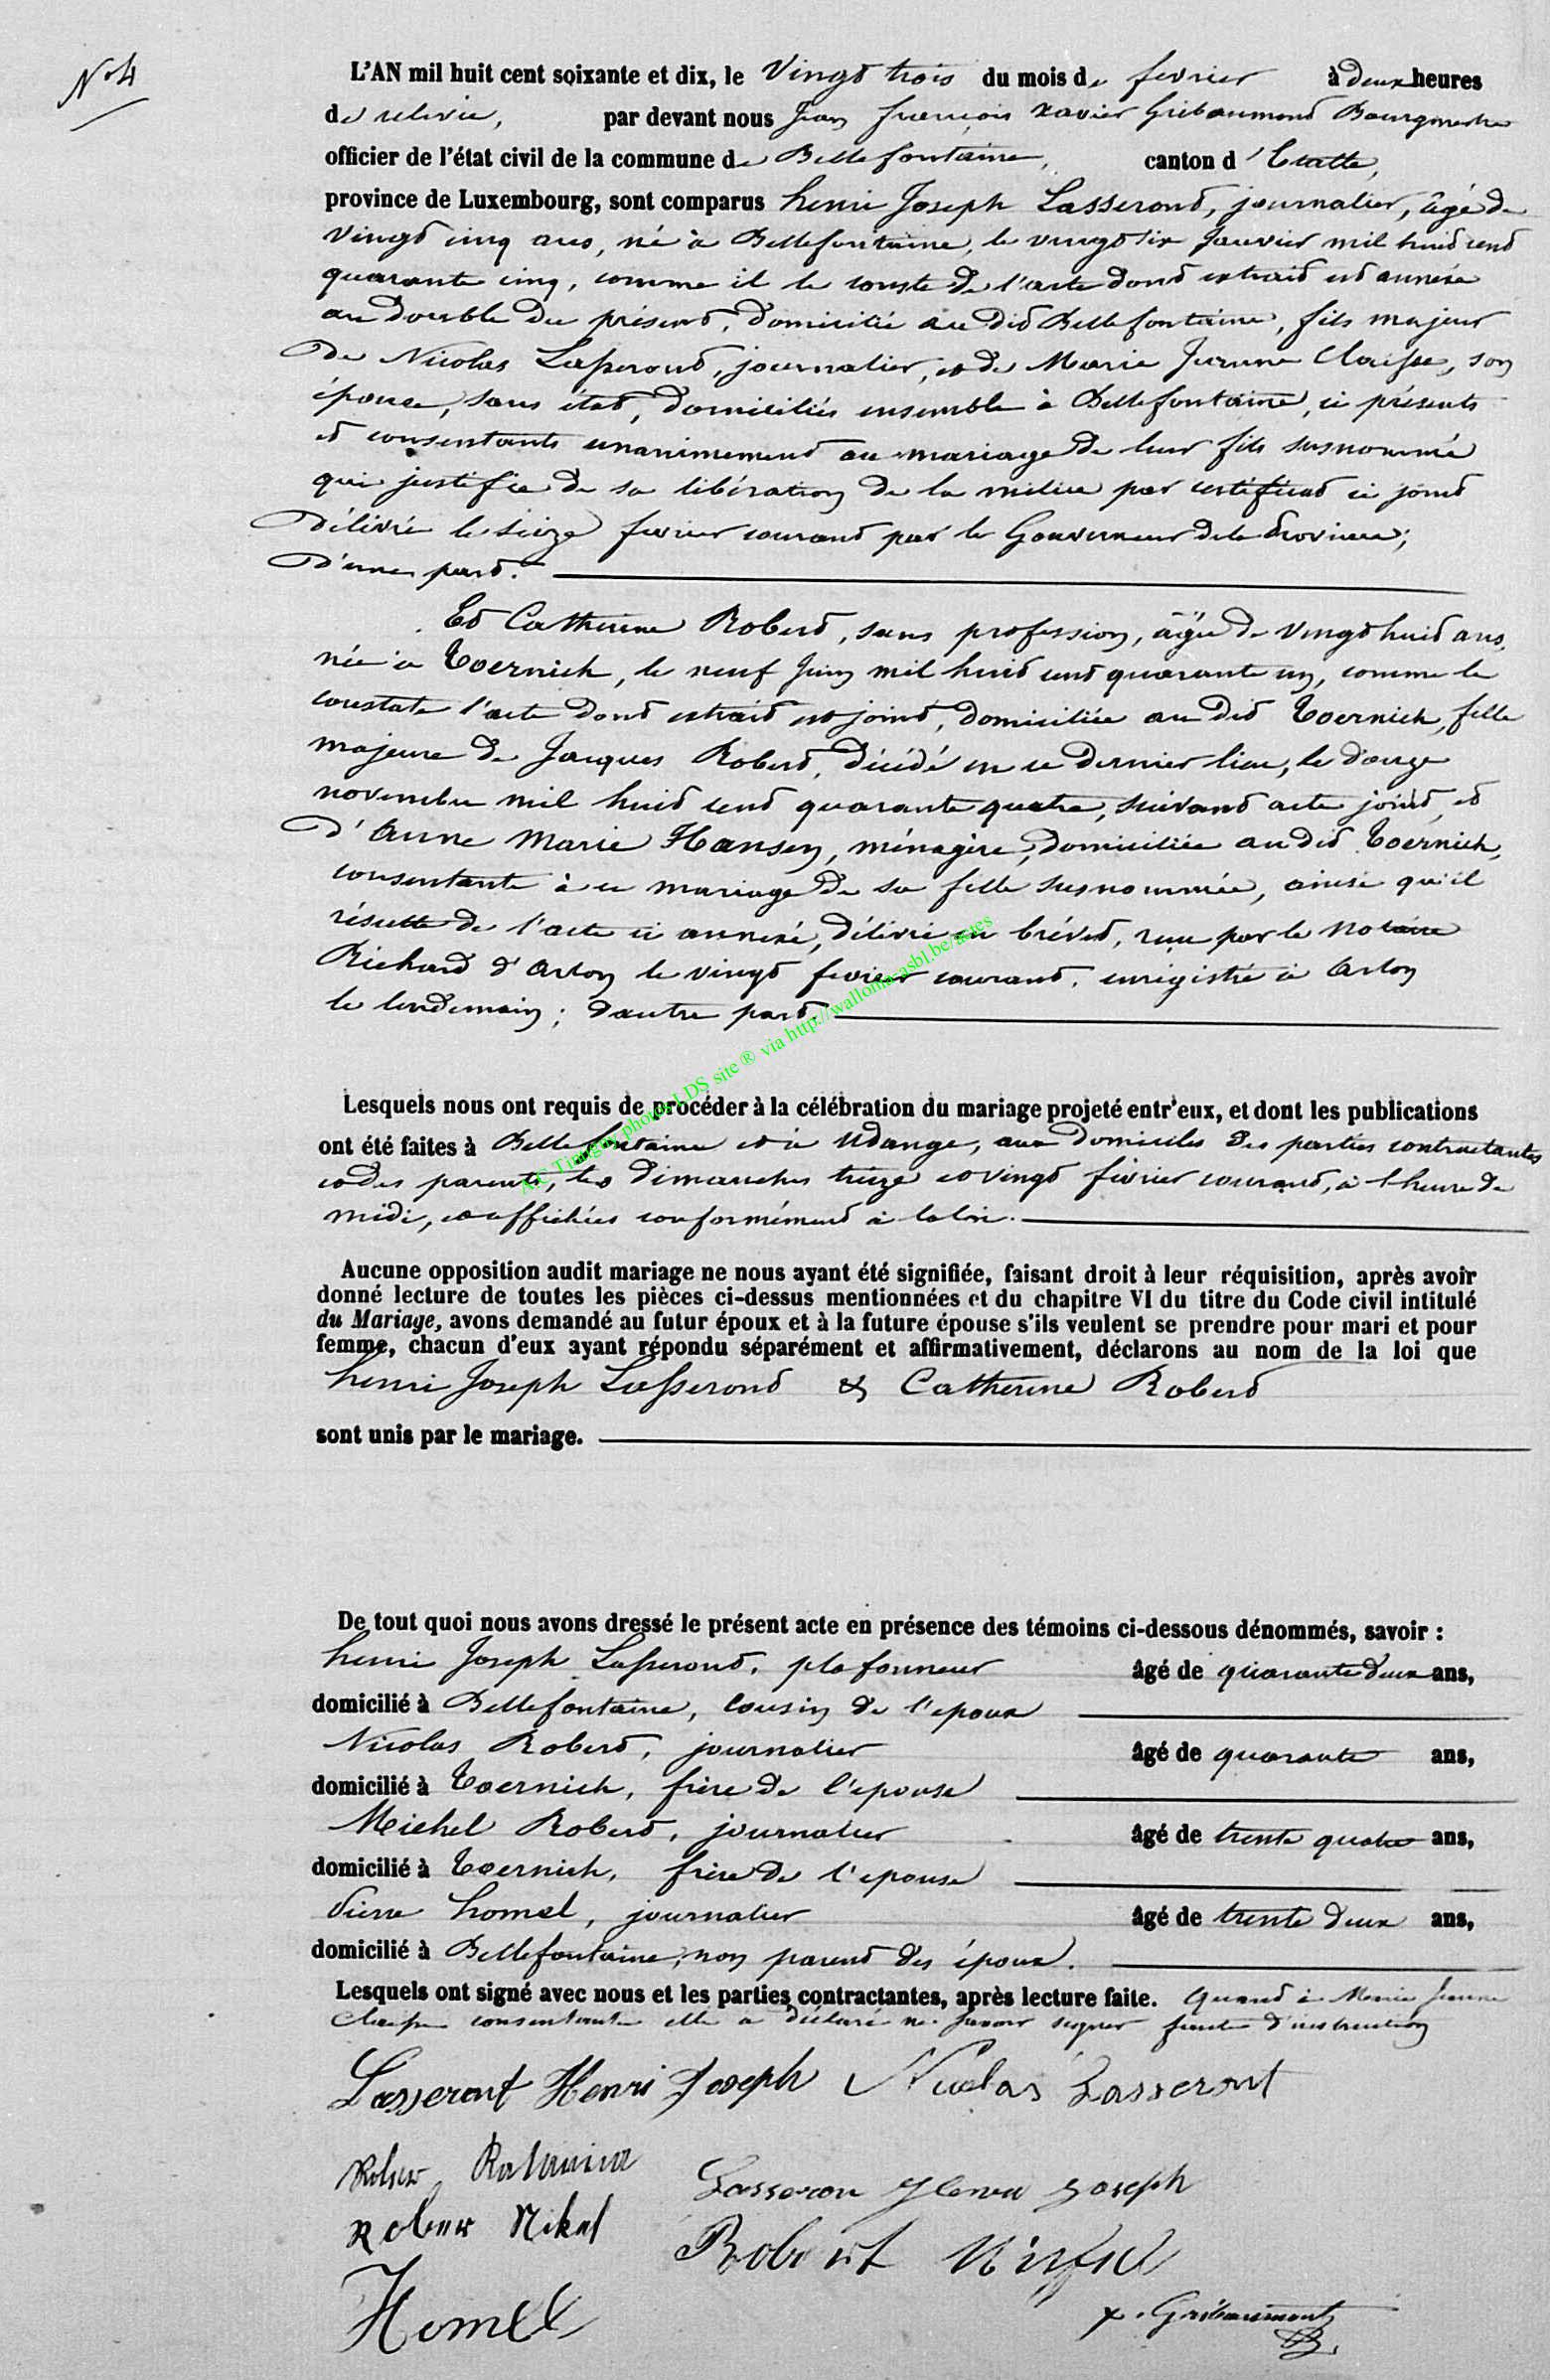 N° 4
L'AN mil huit cent soixante et dix, le Vingt trois du mois de fevrier à deux heures
de relevée, par devant nous Jean françois Xavier Gribaumont Bourgmestre
officier de l'état civil de la commune de Bellefontaine, canton d'Etalle,
province de Luxembourg, sont comparus henri Joseph Lasseront, journalier, âgé de
vingt cinq ans, né à Bellefontaine, le vingt six Janvier mil huit cent
quarante cinq, comme il le conste de l'acte dont extrait est annexé
au double du présent, domicilié au dit Bellefontaine, fils majeur
de Nicolas Lasseront, journalier, et de Marie Jeanne Claisse, son
épouse, sans état, domiciliés ensemble à Bellefontaine, ci présents
et consentants unanimement au mariage de leur fils susnommé
qui justifie de sa libération de la milice par certificat ci joint
délivré le seize fevrier courant par le Gouverneur de la Province;
d'une part.
Et Catherine Robert, sans profession, âgée de vingt huit ans,
née à Toernich, le neuf Juin mil huit cent quarante un, comme le
constate l'acte dont extrait est joint, domiciliée au dit Toernich, fille
majeure de Jacques Robert, décédé en ce dernier lieu, le douze
novembre mil huit cent quarante quatre, suivant acte joint, et
d'Anne Marie Hansen, ménagère, domiciliée au dit Toernich,
consentante à ce mariage de sa fille susnommée, ainsi qu'il
résulte de l'acte ci annexé, délivré en brévet, reçu par le Notaire
Richard d'Arlon le vingt fevrier courant, enrégistré à Arlon
le lendemain; d'autre part.
A.C Tintigny photos LDS site ® via http://wallonia-asbl.be/actes
Lesquels nous ont requis de procéder à la célébration du mariage projeté entr'eux, et dont les publications
ont été faites à Bellefontaine et à Udange, aux domiciles des parties contractantes
et des parents, les dimanches treize et vingt février courant, à l'heure de
midi, et affichées conformément à la loi.
Aucune opposition audit mariage ne nous ayant été signifiée, faisant droit à leur réquisition, après avoir
donné lecture de toutes les pièces ci-dessus mentionnées et du chapitre VI du titre du Code civil intitulé
du Mariage, avons demandé au futur époux et à la future épouse s'ils veulent se prendre pour mari et pour
femme, chacun d'eux ayant répondu séparément et affirmativement, déclarons au nom de la loi que
henri Joseph Lasseront & Catherine Robert
sont unis par le mariage.
De tout quoi nous avons dressé le présent acte en présence des témoins ci-dessous dénommés, savoir :
henri Joseph Lasseront, plafonneur âgé de quarante deux ans,
domicilié à Bellefontaine, cousin de l'epoux
Nicolas Robert, journalier âgé de quarante ans,
domicilié à Toernich, frère de l'epouse
Michel Robert, journalier âgé de trente quatre ans,
domicilié à Toernich, frère de l'epouse
Pierre homel, journalier âgé de trente deux ans,
domicilié à Bellefontaine, non parent des époux.
Lesquels ont signé avec nous et les parties contractantes, après lecture faite. Quant à Marie Jeanne
Claisse consentante elle a déclaré ne savoir signer faute d'instruction
Lasseront Henri Joseph Nicolas Lasseront
Lasseron Henri Joseph
Rober Mikel
Robert
Homel
X. Gribaumont